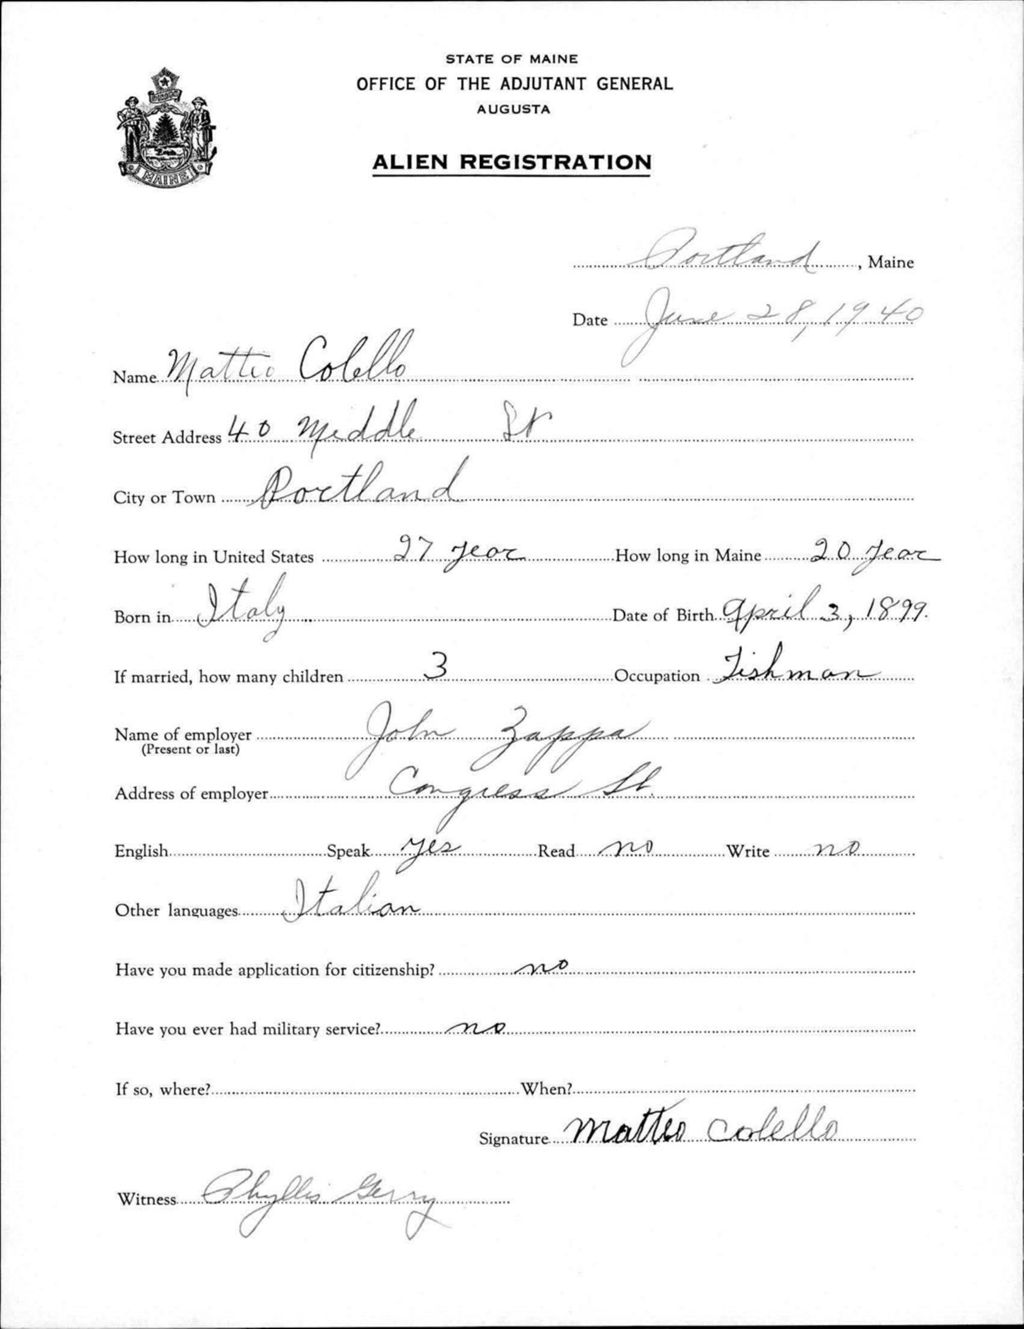 STATE OF MAINE
OFFICE OF THE ADJUTANT GENERAL
AUGUSTA
ALIEN REGISTRATION
MAINE
Portland, Maine
Date June 28, 1940
Name Matteo Colello
Street Address 40 Middle St
City or Town Portland
How long in United States 27 year How long in Maine 20 year
Born in Italy Date of Birth April 3, 1899.
If married, how many children 3 Occupation Fishman
Name of employer John Zappa
(Present or last)
Address of employer Congress St.
English Speak yes Read no Write no
Other languages Italian
Have you made application for citizenship? no
Have you ever had military service? no
If so, where? When?
Signature Matteo Colello
Witness Phyllis Gerry